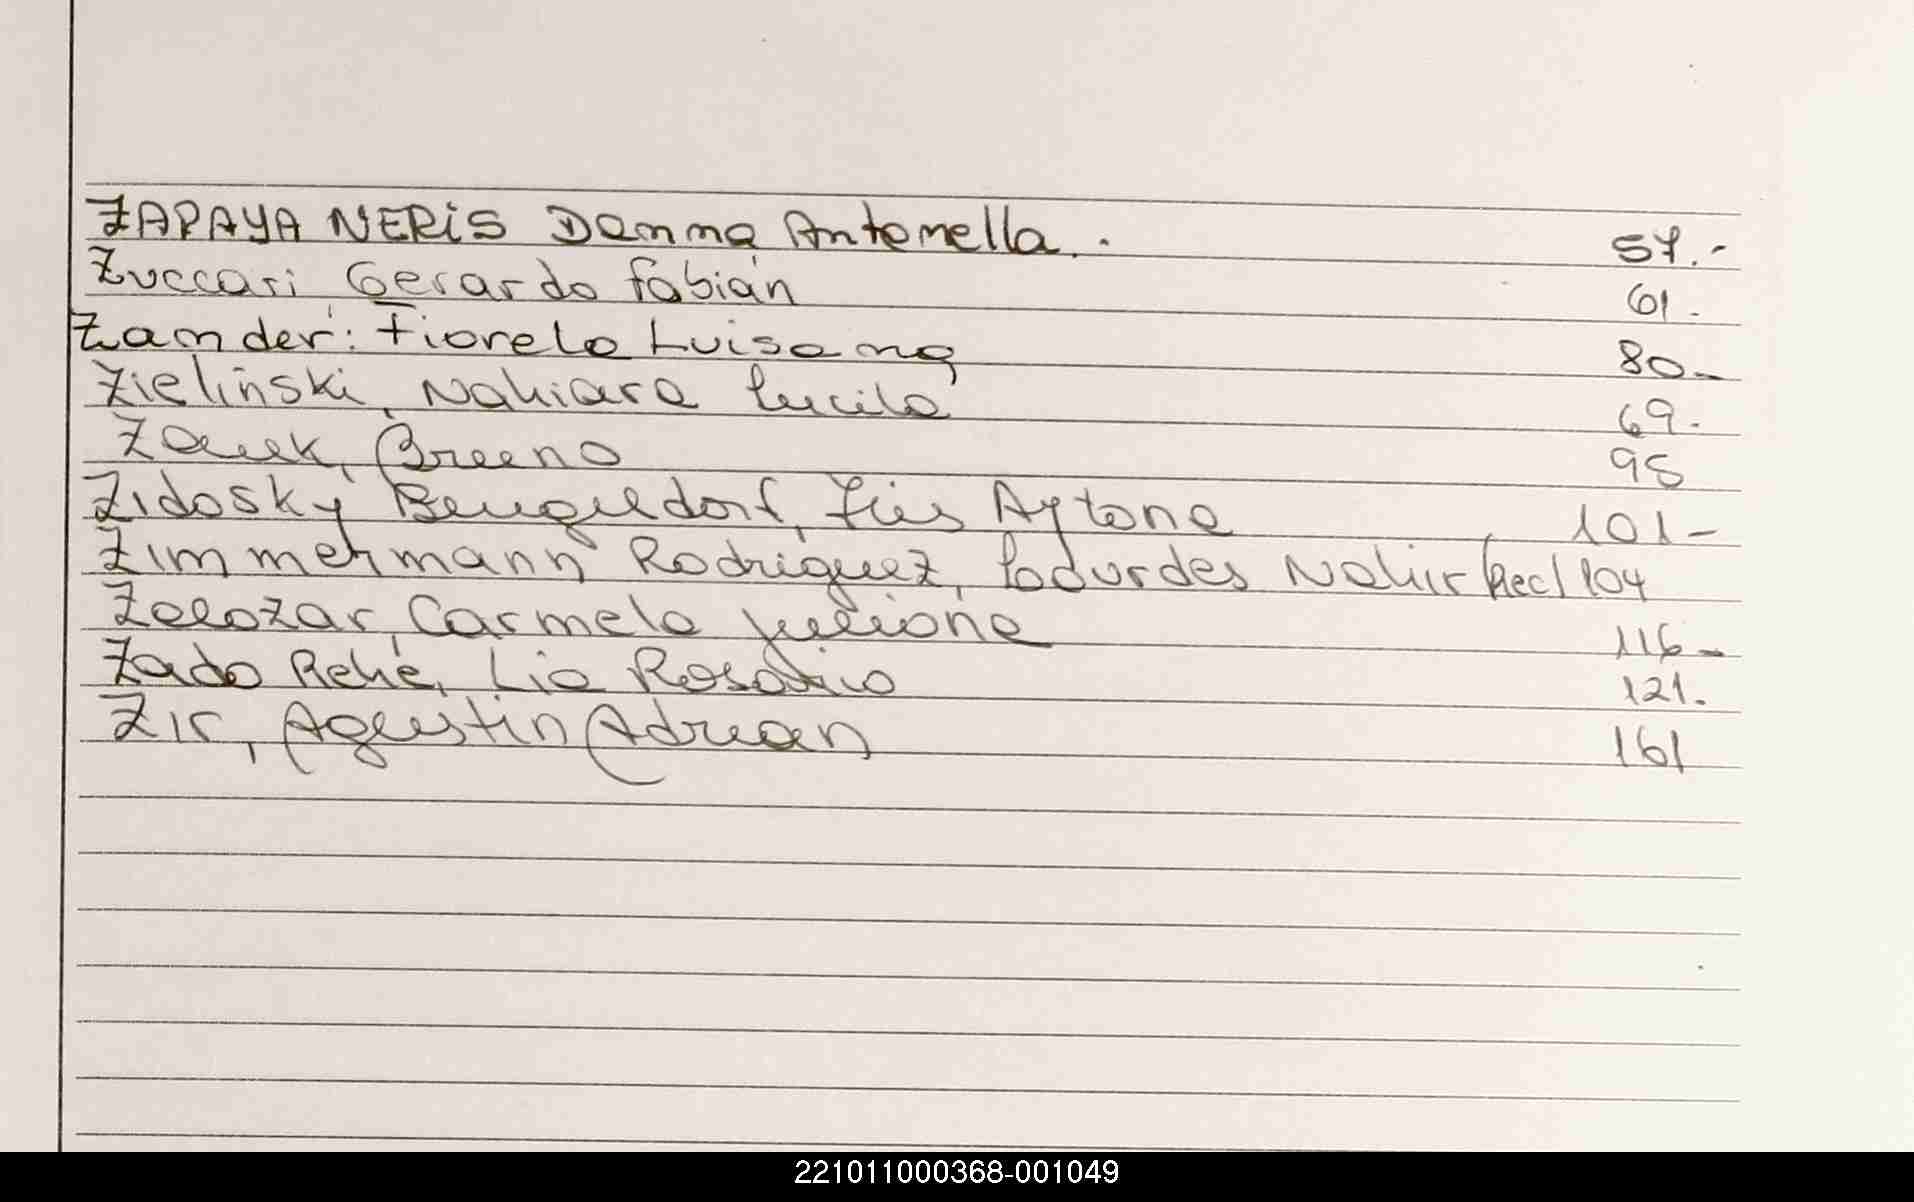 ZAPAYA NERIS Donna Antonella. 57.-
Zuccari, Gerardo Fabián 61.
Zander: Fiorela Luisana 80-
Zielinski, Nahiara Lucila 69.
Bruno 95
Zidosky Aytana 101-
Zimmermann Rodriguez, Lodurdes Nahir (Rec) 104
Carmela Juliana 116-
Zado René, Lia Rosario 121.
Zir, Agustin Adrian 161
221011000368-001049